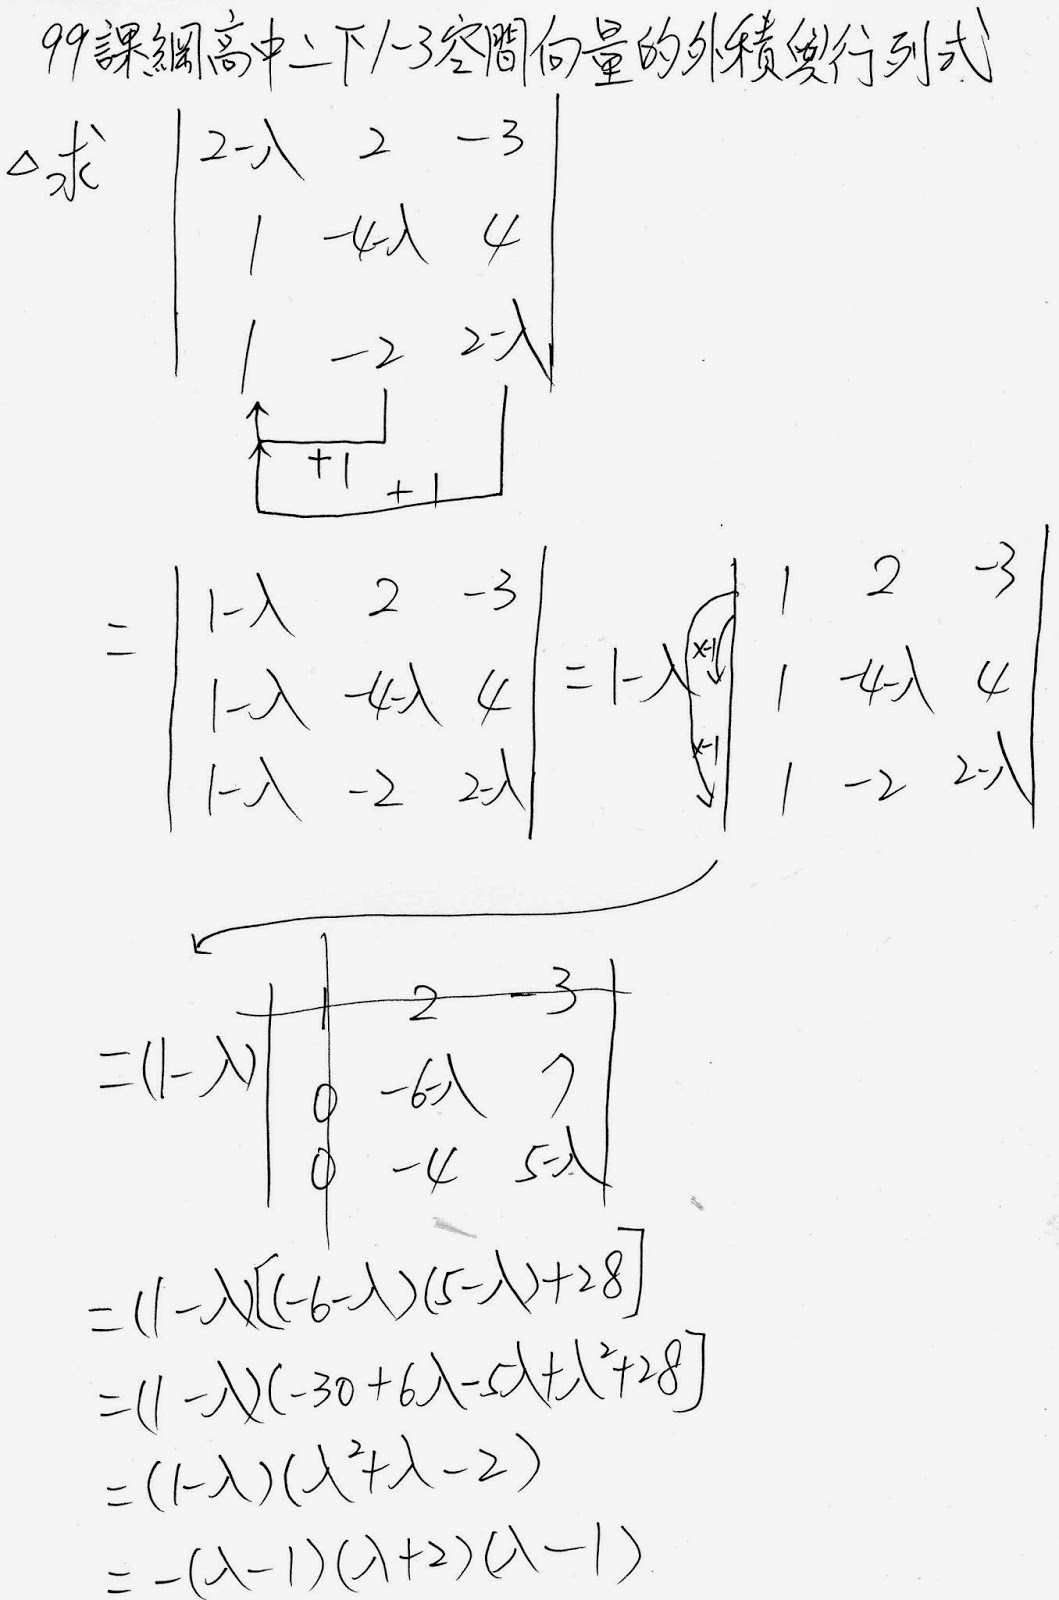 99課綱高中二下1-3空間向量的外積與行列式
△求 | 2-λ 2 -3 |
| 1 -4-λ 4 |
| 1 -2 2-λ |
+1
+1
= | 1-λ 2 -3 | = 1-λ | 1 2 -3 |
| 1-λ -4-λ 4 | x-1 | 1 -4-λ 4 |
| 1-λ -2 2-λ | x-1 | 1 -2 2-λ |
=(1-λ) | 1 2 -3 |
| 0 -6-λ 7 |
| 0 -4 5-λ |
=(1-λ)[(-6-λ)(5-λ)+28]
=(1-λ)(-30+6λ-5λ+λ²+28]
=(1-λ)(λ²+λ-2)
=-(λ-1)(λ+2)(λ-1)